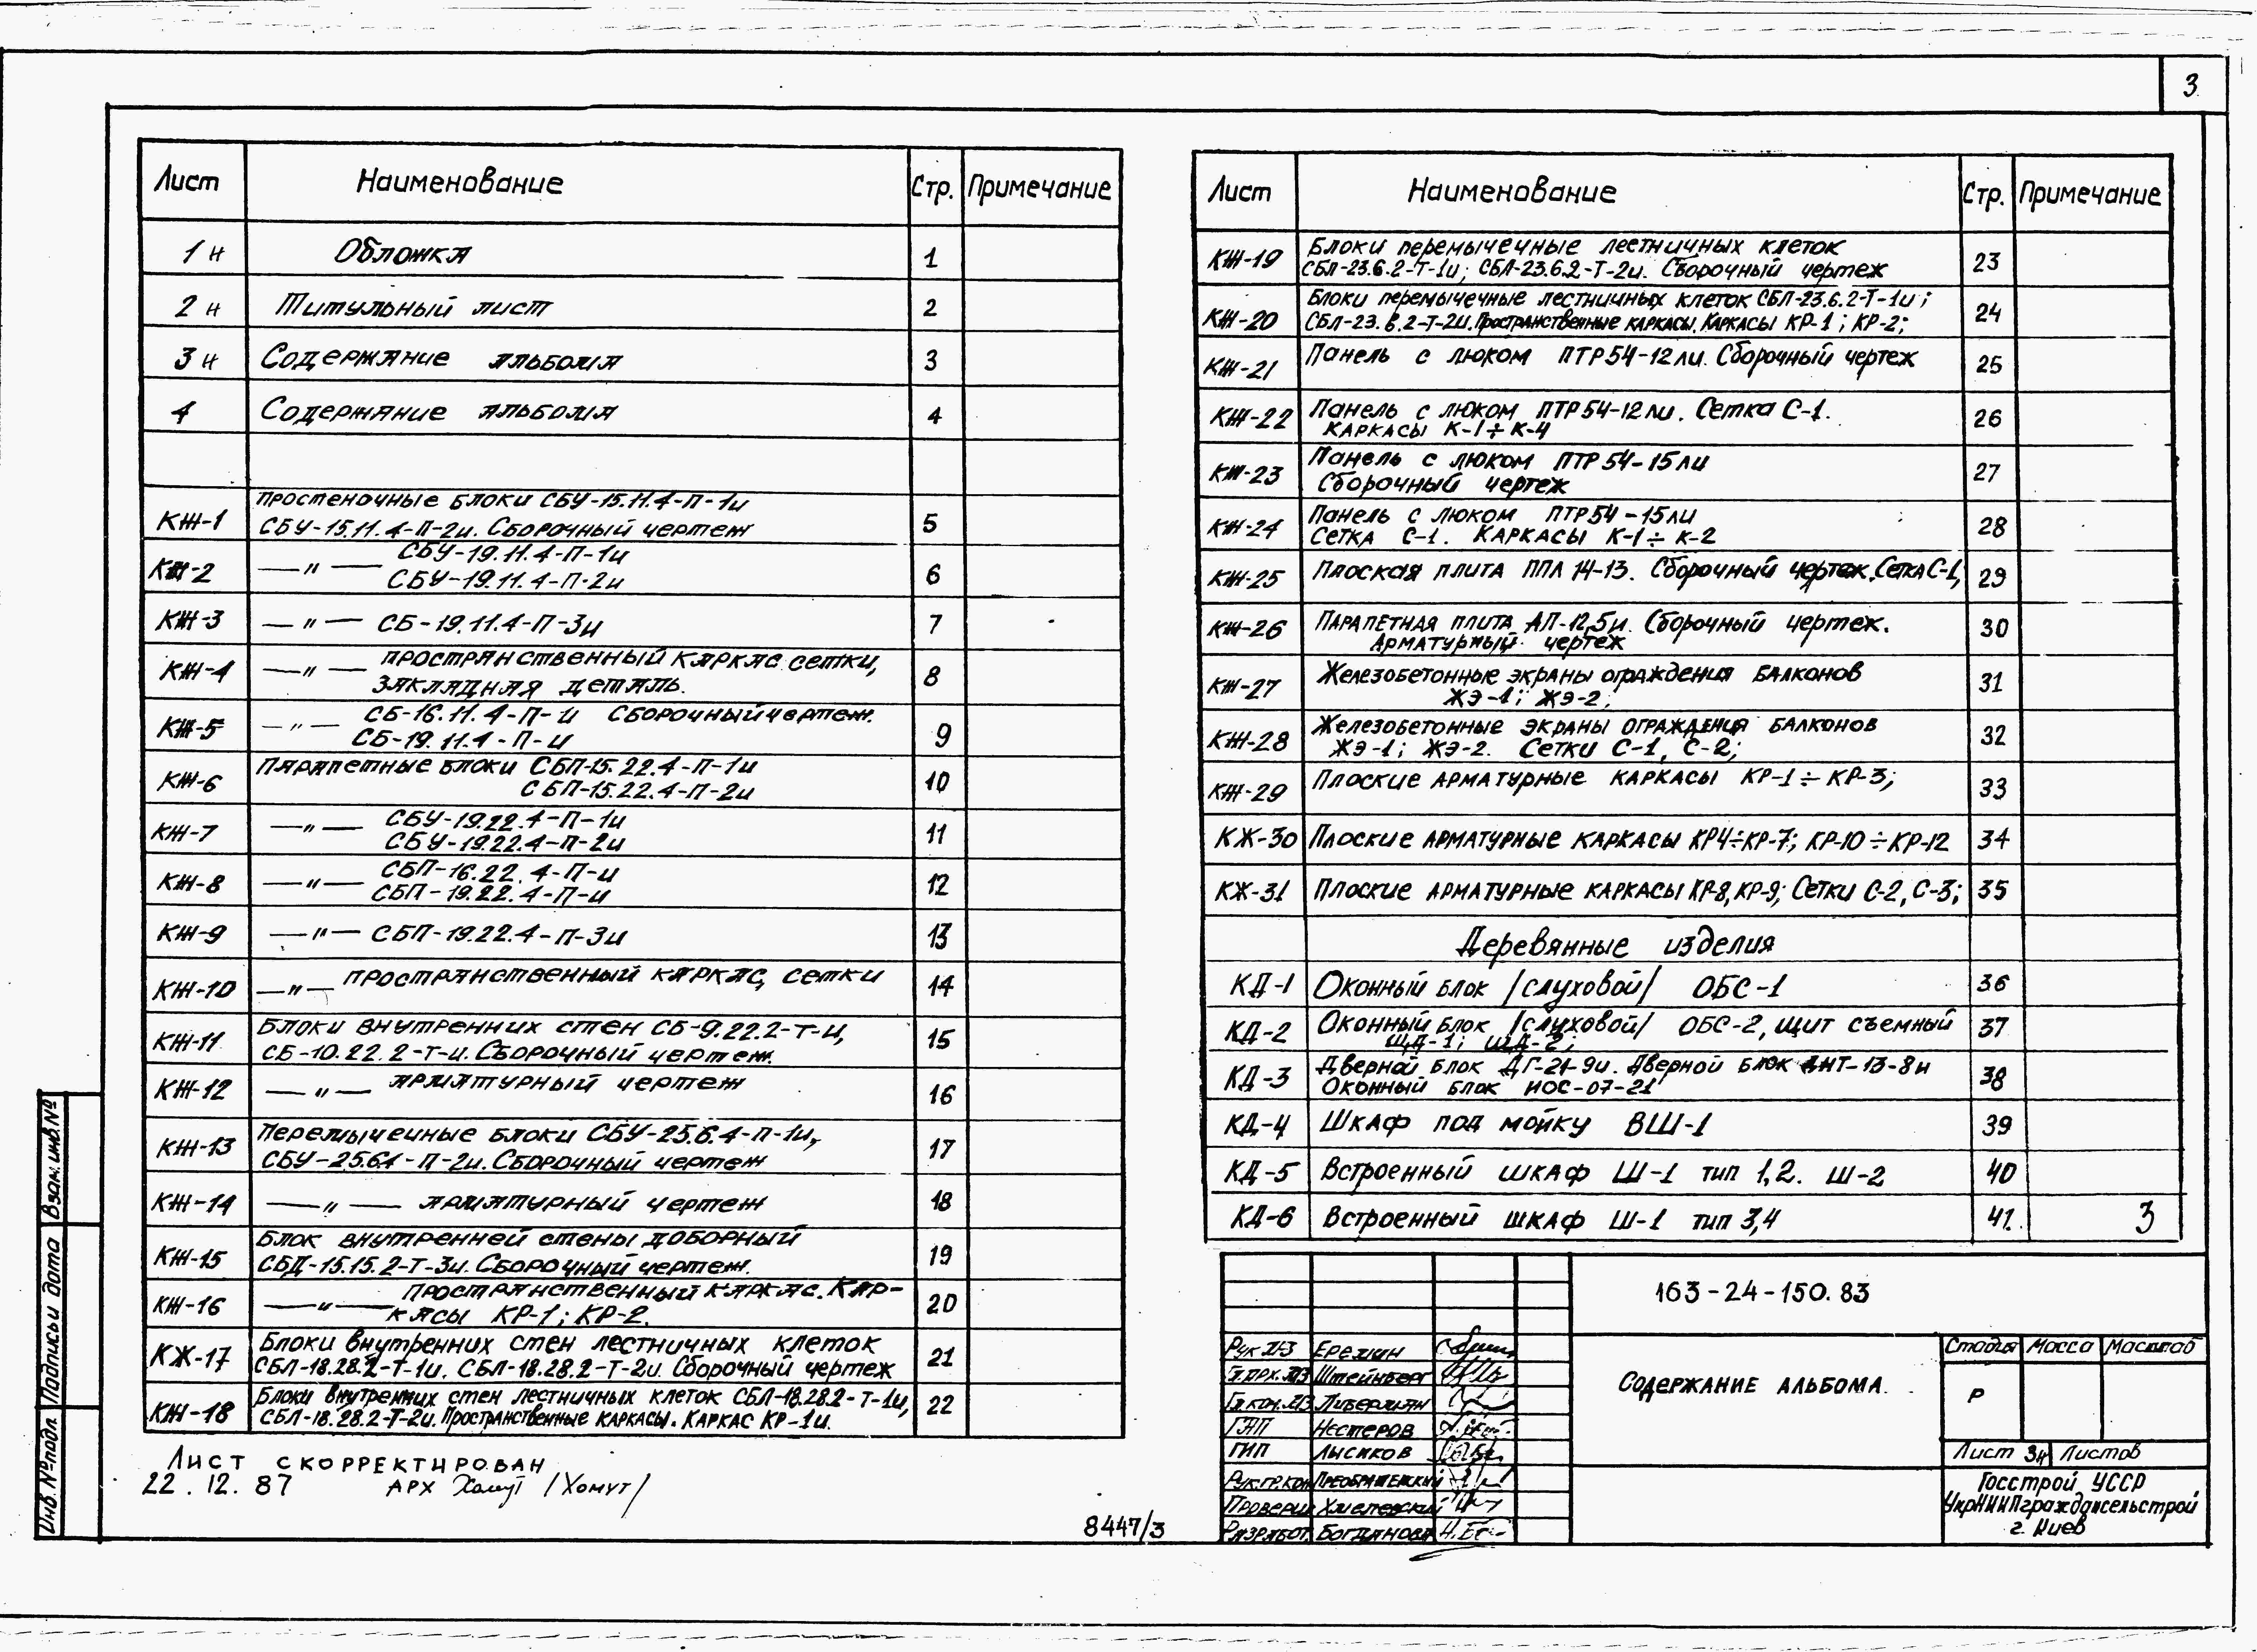 3
Лист Наименование Стр. Примечание
1н Обложка 1
2н Титульный лист 2
3н Содержание альбома 3
4 Содержание альбома 4
Простеночные блоки СБУ-15.11.4-П-1и
КЖ-1 СБУ-15.11.4-П-2и. Сборочный чертеж 5
СБУ-19.11.4-П-1и
КЖ-2 —"— СБУ-19.11.4-П-2и 6
КЖ-3 —"— СБ-19.11.4-П-3и 7
КЖ-4 —"— пространственный каркас сетки, 8
закладная деталь.
КЖ-5 —"— СБ-16.11.4-П-и Сборочный чертеж.
СБ-19.11.4-П-и 9
Парапетные блоки СБП-15.22.4-П-1и
КЖ-6 СБП-15.22.4-П-2и 10
КЖ-7 —"— СБУ-19.22.4-П-1и 11
СБУ-19.22.4-П-2и
КЖ-8 —"— СБП-16.22.4-П-и 12
СБП-19.22.4-П-и
КЖ-9 —"— СБП-19.22.4-П-3и 13
КЖ-10 —"— пространственный каркас, сетки 14
Блоки внутренних стен СБ-9.22.2-Т-и,
КЖ-11 СБ-10.22.2-Т-и. Сборочный чертеж. 15
КЖ-12 —"— арматурный чертеж 16
Перемычечные блоки СБУ-25.6.4-П-1и,
КЖ-13 СБУ-25.64-П-2и. Сборочный чертеж 17
КЖ-14 —"— арматурный чертеж 18
Блок внутренней стены доборный
КЖ-15 СБД-15.15.2-Т-3и. Сборочный чертеж. 19
пространственный каркас. Кар-
КЖ-16 —"— касы КР-1; КР-2. 20
Блоки внутренних стен лестничных клеток
КЖ-17 СБЛ-18.28.2-Т-1и. СБЛ-18.28.2-Т-2и. Сборочный чертеж 21
Блоки внутренних стен лестничных клеток СБЛ-18.28.2-Т-1и,
КЖ-18 СБЛ-18.28.2-Т-2и. Пространственные каркасы. Каркас КР-1и. 22
Лист скорректирован
22.12.87 арх Хомут /Хомут/
8447/3
Лист Наименование Стр. Примечание
Блоки перемычечные лестничных клеток
КЖ-19 СБЛ-23.6.2-Т-1и; СБЛ-23.6.2-Т-2и. Сборочный чертеж 23
Блоки перемычечные лестничных клеток СБЛ-23.6.2-Т-1и;
КЖ-20 СБЛ-23.6.2-Т-2и. Пространственные каркасы. Каркасы КР-1; КР-2; 24
КЖ-21 Панель с люком ПТР54-12ли. Сборочный чертеж 25
КЖ-22 Панель с люком ПТР54-12ли. Сетка С-1. 26
Каркасы К-1÷К-4
Панель с люком ПТР54-15ли
КЖ-23 Сборочный чертеж 27
Панель с люком ПТР54-15ли
КЖ-24 Сетка С-1. Каркасы К-1÷К-2 28
КЖ-25 Плоская плита ППЛ 14-13. Сборочный чертеж. Сетка С-1; 29
КЖ-26 Парапетная плита АП-12,5и. Сборочный чертеж. 30
Арматурный чертеж
КЖ-27 Железобетонные экраны ограждения балконов 31
ЖЭ-1; ЖЭ-2;
Железобетонные экраны ограждения балконов
КЖ-28 ЖЭ-1; ЖЭ-2. Сетки С-1, С-2; 32
КЖ-29 Плоские арматурные каркасы КР-1÷КР-3; 33
КЖ-30 Плоские арматурные каркасы КР4÷КР-7; КР-10÷КР-12 34
КЖ-31 Плоские арматурные каркасы КР-8, КР-9; Сетки С-2, С-3; 35
Деревянные изделия
КД-1 Оконный блок /слуховой/ ОБС-1 36
КД-2 Оконный блок /слуховой/ ОБС-2, щит съемный 37
ЩД-1; ЩД-2;
КД-3 Дверной блок ДГ-21-9и. Дверной блок ДНТ-13-8и 38
Оконный блок НОС-07-21
КД-4 Шкаф под мойку ВШ-1 39
КД-5 Встроенный шкаф Ш-1 тип 1,2. Ш-2 40
КД-6 Встроенный шкаф Ш-1 тип 3,4 41. 3
163-24-150.83
Содержание альбома.
Стадия Масса Масштаб
Р
Лист 3н Листов
Госстрой УССР
УкрНИИПграждансельстрой
г. Киев
Еремин
Штейнберг
Либерман
ГАП Нестеров
ГИП Лысиков
Рук.гр.кон Преображенский
Проверил Хмелевский
Разработ.
Взам. инв. №
Подпись и дата
Инв. № подл